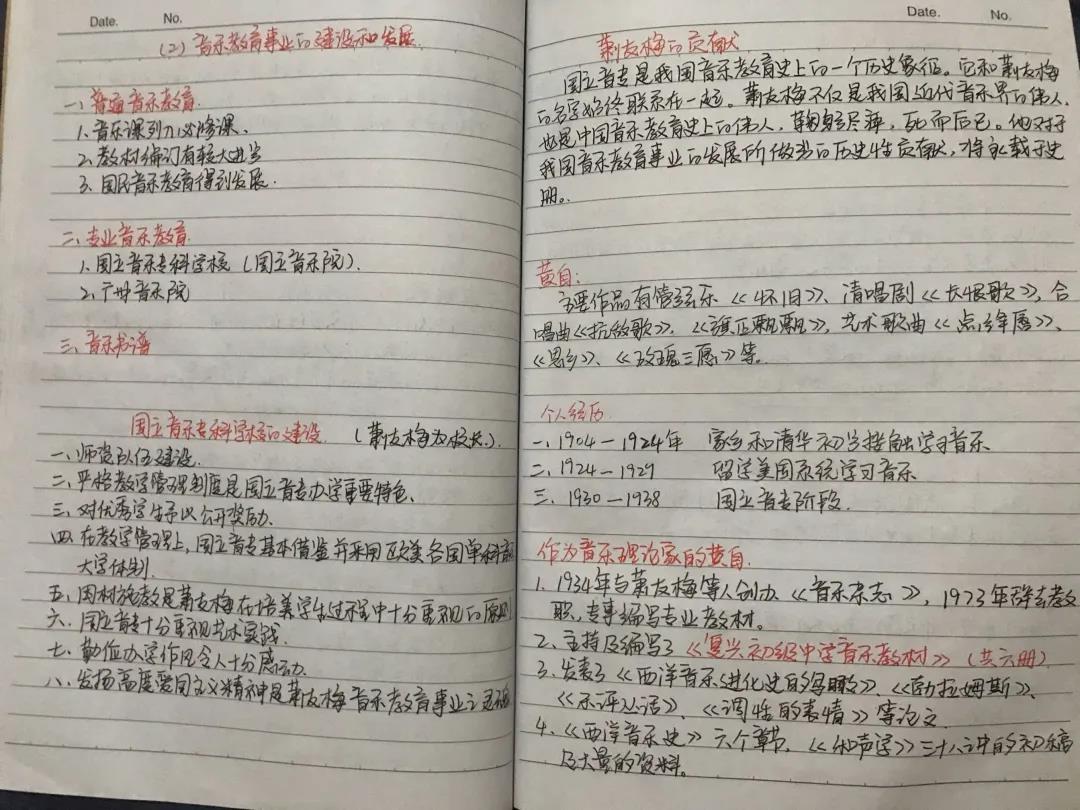 Date. No.
(2) 音乐教育事业的建设和发展
一、普通音乐教育.
1.音乐课列为必修课.
2.教材编订有较大进步
3.国民音乐教育得到发展.
二、专业音乐教育.
1.国立音乐专科学校（国立音乐院）.
2.广州音乐院
三、音乐书谱
国立音乐专科学校的建设. （萧友梅为校长.）
一、师资队伍建设.
二、严格教学管理制度是国立音专办学重要特色.
三、对优秀学生予以公开奖励.
四、在教学管理上, 国立音专基本借鉴并采用欧美各国单科音
大学体制.
五、因材施教是萧友梅在培养学生过程中十分重视的原则
六、国立音专十分重视艺术实践.
七、勤俭办学作风令人十分感动.
八、发扬高度爱国主义精神是萧友梅音乐教育事业之
Date. No.
萧友梅的贡献
国立音专是我国音乐教育史上的一个历史象征。它和萧友梅
的名字始终联系在一起。萧友梅不仅是我国近代音乐界的伟人,
也是中国音乐教育史上的伟人, 鞠躬尽瘁, 死而后已。他对于
我国音乐教育事业的发展所做出的历史性贡献, 将永载于史
册。
黄自:
主要作品有管弦乐《怀旧》、清唱剧《长恨歌》, 合
唱曲《抗敌歌》, 《旗正飘飘》, 艺术歌曲《点绛唇》、
《思乡》、《玫瑰三愿》等.
个人经历.
一、1904—1924年 家乡和清华初步接触学习音乐
二、1924—1929 留学美国系统学习音乐
三、1930—1938 国立音专阶段.
作为音乐理论家的黄自.
1. 1934年与萧友梅等人创办《音乐杂志》, 1973年辞去教
职, 专事编写专业教材.
2. 主持及编写了《复兴初级中学音乐教材》（共六册）
3. 发表了《西洋音乐进化史的鸟瞰》、《勃拉姆斯》、
《乐评丛话》、《调性的表情》等论文.
4. 《西洋音乐史》六个章节, 《和声学》三十八讲的初稿
及大量的资料。